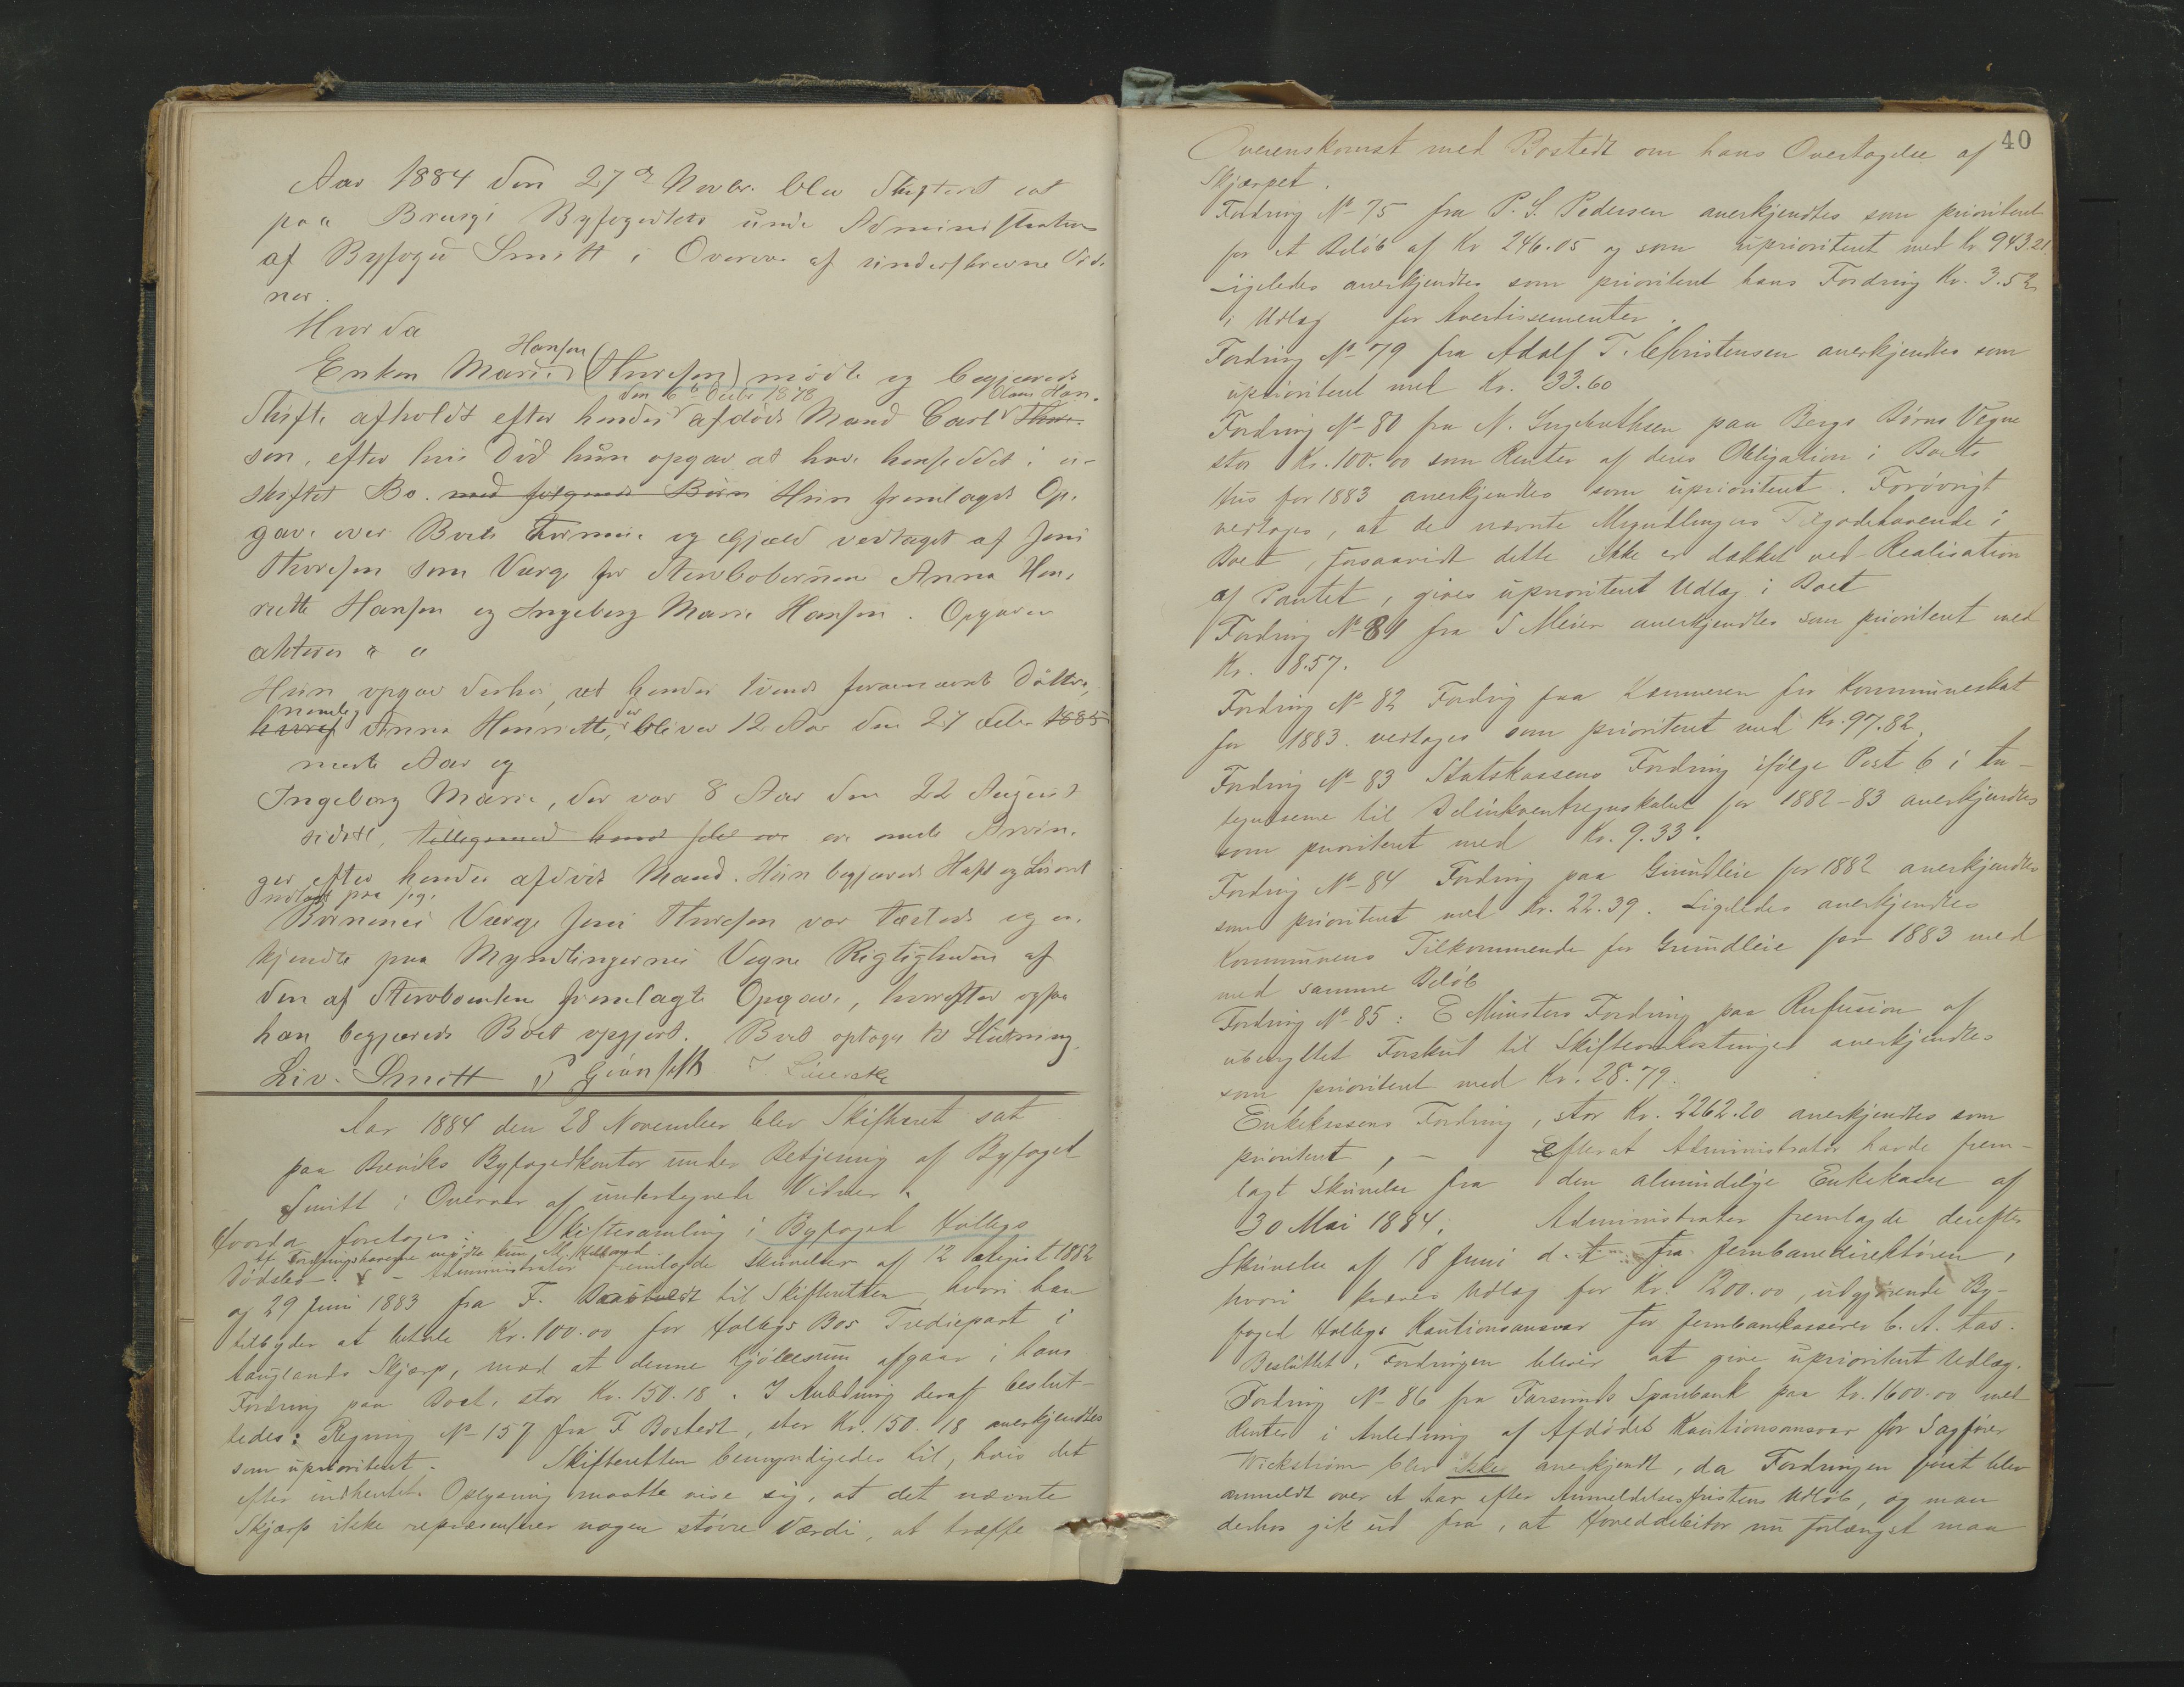 Aar 1884 den 27de Novbr. blev Skifteret sat
paa Brevigs Byfogedkts under Administration
af Byfoged Smitt i Overvær af underskrevne Vid-
ner.
Hvorda
Enken Marie Hansen (Thoresen) mødte og begjærede
Skifte afholdt efter hendes den 6te Decbr 1878 afdøde Mand Carl Olaus Han-
sen, efter hvis Død hun opgav at have hensiddet i u-
skiftet Bo. med følgende Børn Hun fremlagde Op-
gave over Boets Formue og Gjæld vedtaget af Jens
Thoresen som Værge for Stervbobørnene Anna Hen-
riette Hansen og Ingeborg Marie Hansen. Opgaven
akteres " "
Hun opgav derhos, at hendes tvende fornævnte Døttre,
nemlig Anna Henriette, der bliver 12 Aar den 27 Febr 1885
næste Aar og
Ingeborg Marie, der var 8 Aar den 22 August
sidstl, tilligemed hende selv ere ere eneste Arvin-
ger efter hendes afdøde Mand. Hun begjærede Hæft og Løsøret
udlagt paa sig.
Børnenes Værge Jens Thoresen var tilstede og er-
kjendte paa Myndlingernes Vegne Rigtigheden af
den af Stervboenken fremlagte Opgave, hvorefter ogsaa
han begjærede Boet opgjort. Boet optages til Slutning.
Liv. Smitt
Aar 1884 den 28 November blev Skifteret sat
paa Breviks Byfogedkontor under Betjening af Byfoged
Smitt i Overvær af undertegnede Vidner.
Hvorda foretoges: Skiftesamling i Byfoged Hollegs
Af Fordringshaverne mødte kun M.
Dødsbo. - Administrator fremlagde Skrivelser af 12 August 1882
og 29 Juni 1883 fra F. Bostedt til Skifteretten, hvori han
tilbyder at betale Kr. 100.00 for Hollegs Bos Trediepart i
Langlands Skjærp, mod at denne Kjøbesum afgaar i hans
Fordring paa Boet, stor Kr. 150.18. I Anledning deraf beslut-
tedes: Regning No 157 fra F Bostedt, stor Kr. 150.18 anerkjendtes
som uprioriteret. Skifteretten bemyndigedes til, hvis det
efter indhentet Oplysning maatte vise sig, at det nævnte
Skjærp ikke repræsenterer nogen større Værdi, at træffe
40
Overenskomst med Bostedt om hans Overtagelse af
Skjærpet.
Fordring No 75 fra P. S. Pedersen anerkjendtes som prioriteret
for et Beløb af Kr 246.05 og som uprioriteret med Kr 943.21.
Ligeledes anerkjendtes som prioriteret hans Fordring Kr. 3.52
i Udlæg for Avertissementer.
Fordring No 79 fra Adolf T. Christensen anerkjendtes som
uprioriteret med Kr. 33.60
Fordring No 80 fra N. Ingebrethsen paa Bergs Børns Vegne
stor Kr. 100.00 som Renter af deres Obligation i Boets
Hus for 1883 anerkjendtes som uprioriteret. Forøvrigt
vedtoges, at de nævnte Myndlingers Tilgodehavende i
Boet, forsaavidt dette ikke er dækket ved Realisation
af Pantet, gives uprioriteret Udlæg i Boet
Fordring No 81 fra S Meier anerkjendtes som prioriteret med
Kr. 18.57.
Fordring No 82 Fordrg fra Kæmneren for Kommuneskat
for 1883. vedtoges som prioriteret med Kr. 97.82.
Fordring No 83 Statskassens Fordring ifølge Post 6 i An-
tegnelserne til Delinkventregnskabet for 1882-83 anerkjendtes
som prioriteret med Kr. 9.33.
Fordring No 84 Fordring paa Grundleie for 1882 anerkjendtes
som prioriteret med Kr. 22.39. Ligeledes anerkjendtes
Kommunens Tilkommende for Grundleie for 1883 med
med samme Beløb
Fordring No 85: E Münsters Fordring paa Refusion af
ubenyttet Forskud til Skifteomkostninger anerkjendtes
som prioriteret med Kr. 28.79.
Enkekassens Fordring, stor Kr. 2262.20 anerkjendtes som
prioriteret, - Efterat Administrator havde frem-
lagt Skrivelse fra den almindelige Enkekasse af
30 Mai 1884. Administrator fremlagde derefter
Skrivelse af 18 Juni d. A. fra Jernbanedirektøren,
hvori kræves Udlæg for Kr. 1200.00, udgjørende By-
foged Hollegs Kautionsansvar for Jernbanekasserer C. A. Aas.
Besluttet, Fordringen bliver at give uprioriteret Udlæg.
Fordring No 86 fra Farsunds Sparebank paa Kr. 1600.00 med
Renter i Anledning af Afdødes Kautionsansvar for Sagfører
Wickstrøm blev ikke anerkjendt, da Fordringen først blev
anmeldt over et Aar efter Anmeldelsesfristens Udløb, og man
derhos gik ud fra, at Hoveddebitor nu forlængst maa